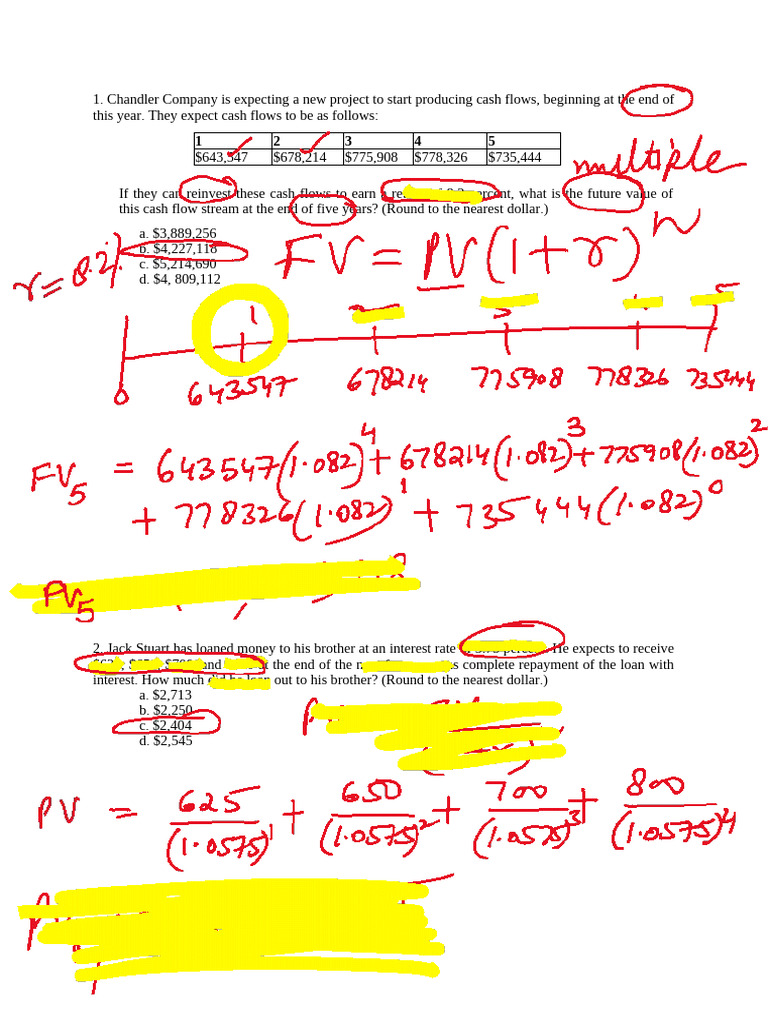 1. Chandler Company is expecting a new project to start producing cash flows, beginning at the end of
this year. They expect cash flows to be as follows:
1 2 3 4 5
$643,547 $678,214 $775,908 $778,326 $735,444
multiple
If they can reinvest these cash flows to earn a percent, what is the future value of
this cash flow stream at the end of five years? (Round to the nearest dollar.)
a. $3,889,256
b. $4,227,118
c. $5,214,690
d. $4, 809,112
r = 8.2%
FV = PV (1 + r)^n
1 5
0 643547 678214 775908 778326 735444
FV5 = 643547 (1.082)^4 + 678214 (1.082)^3 + 775908 (1.082)^2
+ 778326 (1.082)^1 + 735444 (1.082)^0
FV5
2. Jack Stuart has loaned money to his brother at an interest rate percent. He expects to receive
and at the end of the complete repayment of the loan with
interest. How much out to his brother? (Round to the nearest dollar.)
a. $2,713
b. $2,250
c. $2,404
d. $2,545
PV = 625/(1.0575)^1 + 650/(1.0575)^2 + 700/(1.0575)^3 + 800/(1.0575)^4